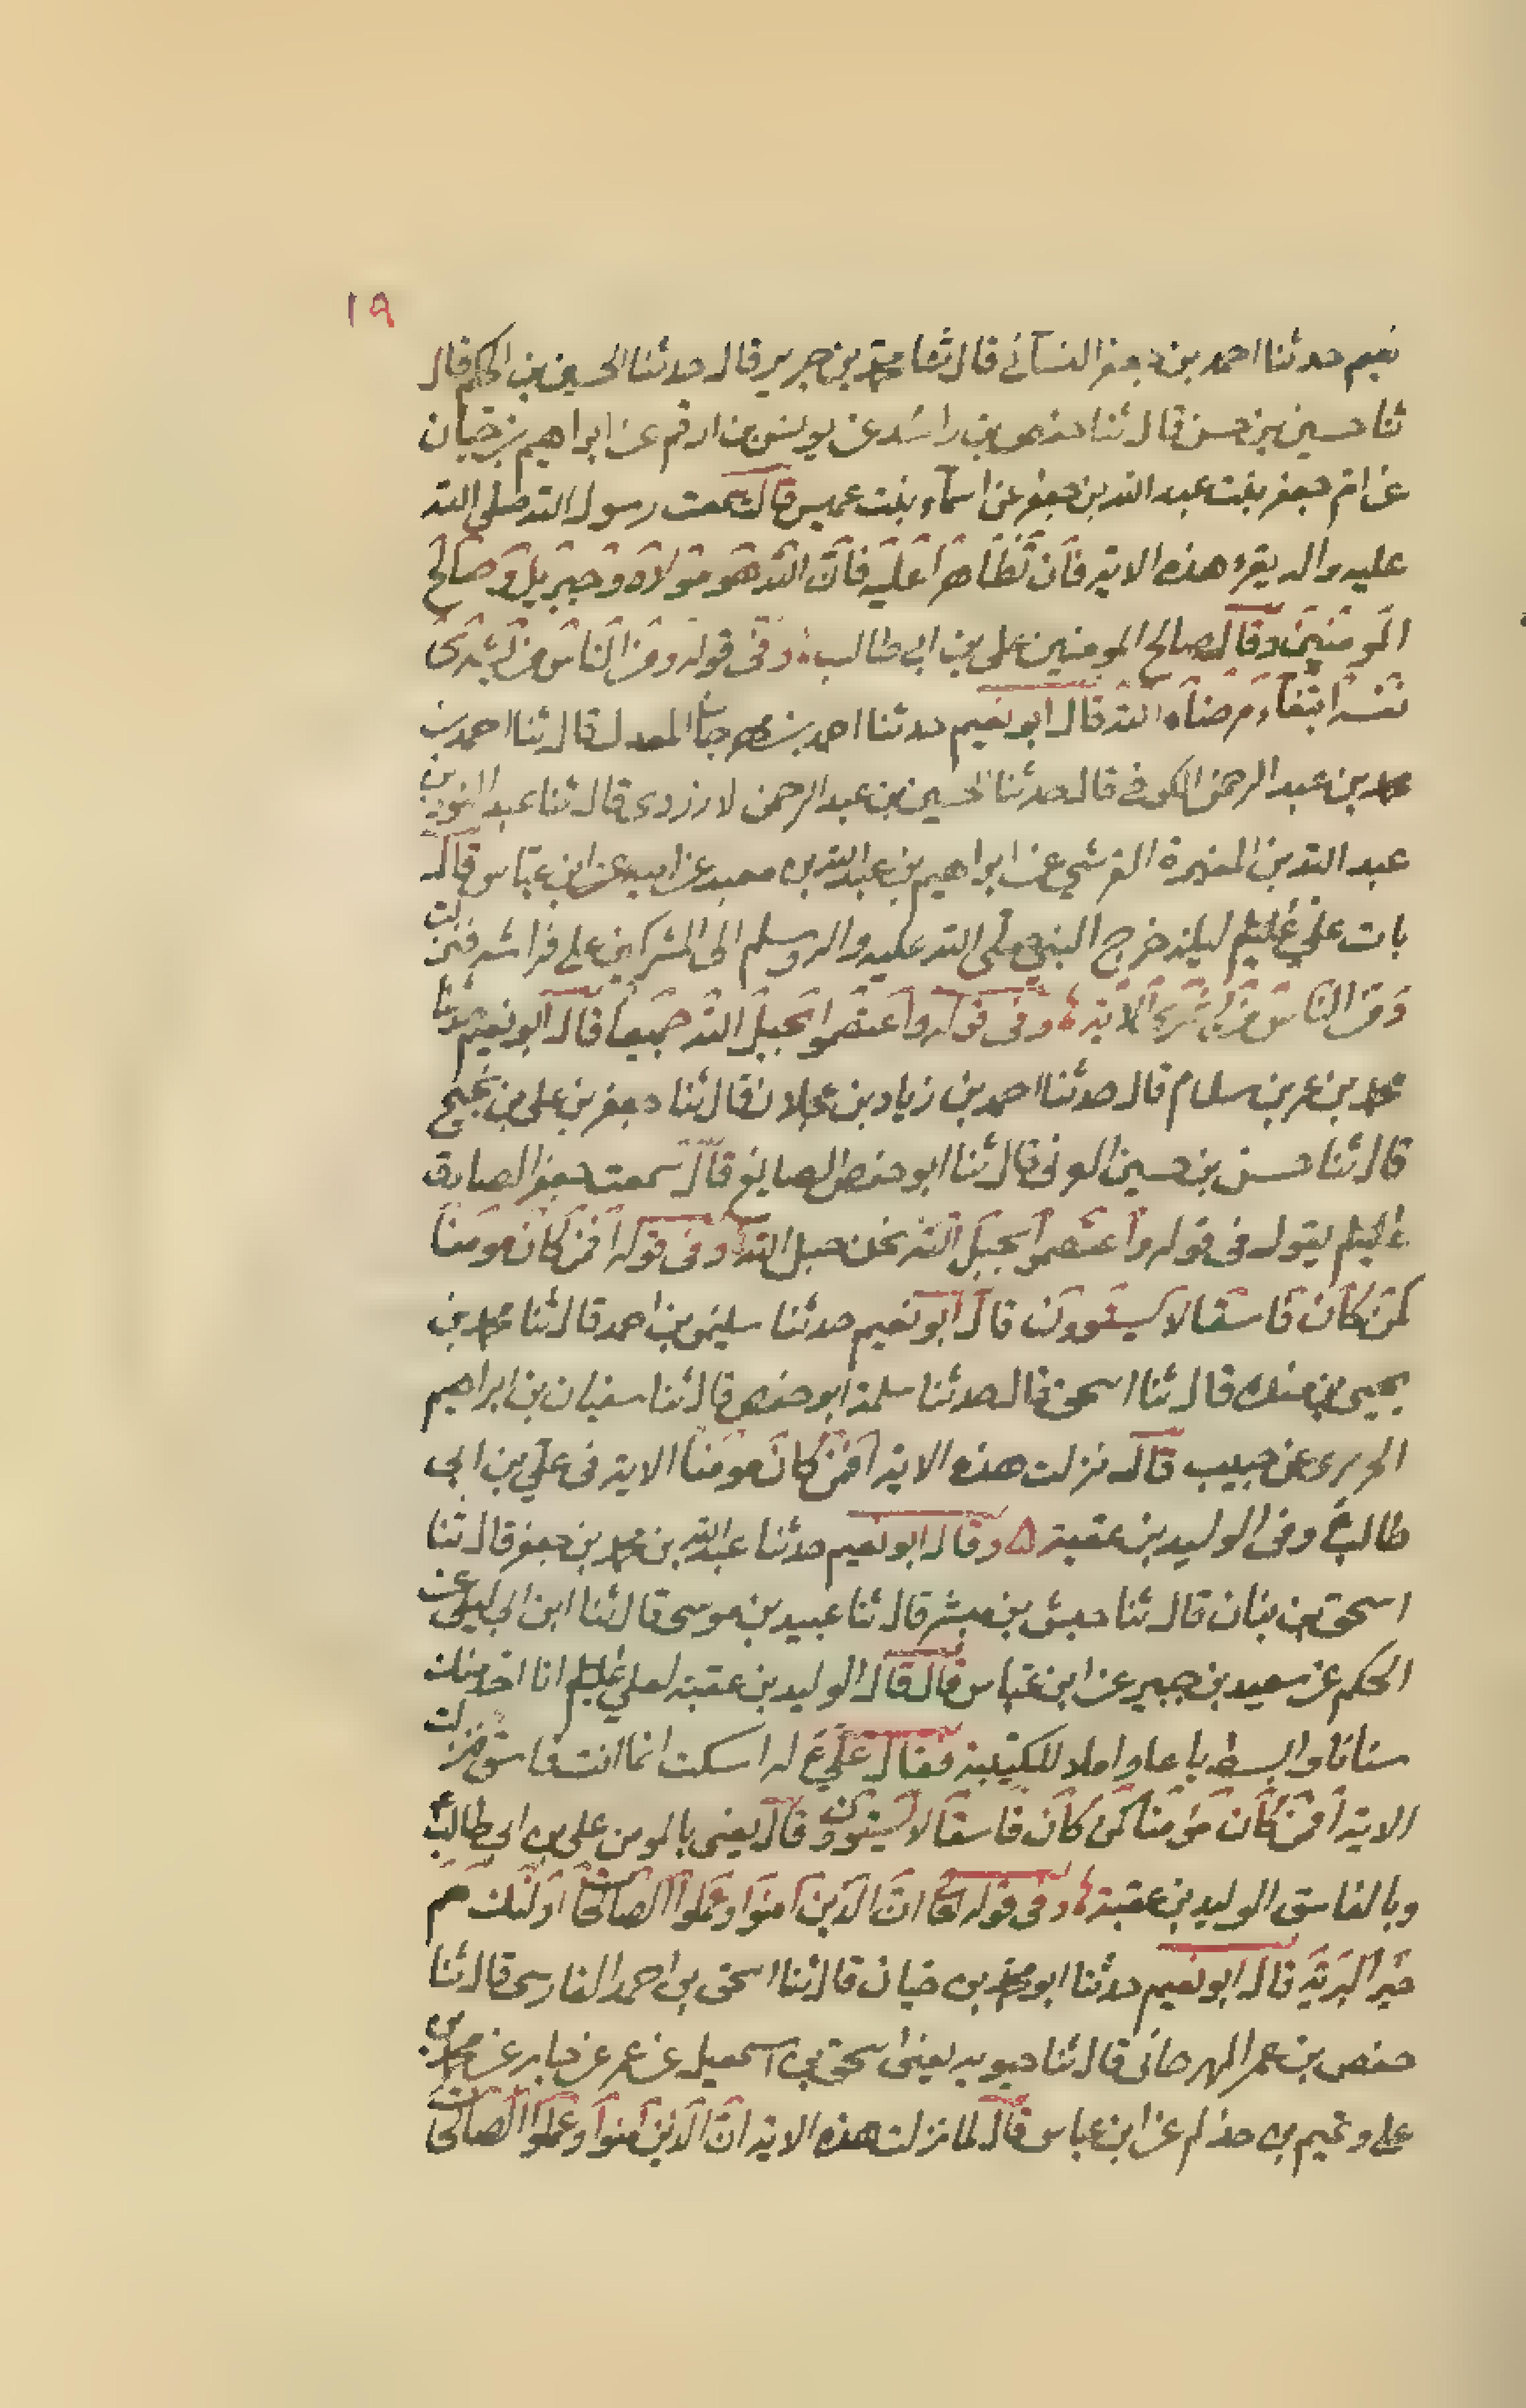 ١٩
نعيم حدثنا احمد بن جعفر النسائي قال ثنا محمد بن جرير قال حدثنا الحسين بن الحكم قال
ثنا حسين بن حسن قال ثنا حفص بن راشد عن يونس بن ارقم عن ابراهيم بن حيان
عن ام جعفر بنت عبد الله بن جعفر عن اسماء بنت عميس قالت سمعت رسول الله صلى الله
عليه واله يقرء هذه الاية فان تظاهرا عليه فان الله هو موليه وجبريل وصالح
المومنين وقال صالح المومنين على بن ابي طالب وفى قوله ومن الناس من يشرى
نفسه ابتغاء مرضاه الله قال ابو نعيم حدثنا احمد بن المعدل قال ثنا احمد بن
محمد بن عبد الرحمن الكوفي قال حدثنا الحسين بن عبد الرحمن لارزدى قال ثنا عبد النور بن
عبد الله بن المغيرة القرشي عن ابراهيم بن عبد الله بن معبد عن ابيه عن ابن عباس قال
بات على عليلم ليلة خرج النبي صلى الله عليه واله وسلم الى المشركين على فراشه فنزلت
ومن الناس من يشرى الاية وفى قوله واعتصموا بحبل الله جميعا قال ابو نعيم حدثنا
محمد بن عمر بن سلام قال حدثنا احمد بن زياد بن عجلان قال ثنا جعفر بن على بن نجيح
قال ثنا حسن بن حسين العرنى قال ثنا ابو حفص الصايغ قال سمعت جعفر الصادق
عليلم يقول فى قوله واعتصموا بحبل الله نحن حبل الله وفى قوله افمن كان مومنا
كمن كان فاسقا لا يستوون قال ابو نعيم حدثنا سليمن بن احمد قال ثنا محمد بن
يحيى بن منده قال ثنا اسحق قال حدثنا سلمة ابو حفص قال ثنا سفيان بن ابراهيم
الحريرى عن حبيب قال نزلت هذه الاية افمن كان مومنا الاية فى علي بن ابى
طالب ع وفى الوليد بن عقبة ۵ وقال ابو نعيم حدثنا عبد الله بن محمد بن جعفر قال ثنا
اسحق بن بنان قال ثنا حبيش بن مبشر قال ثنا عبيد بن موسى قال ثنا ابن ابى ليلى عن
الحكم عن سعيد بن جبير عن ابن عباس قال قال الوليد بن عقبة لعلي عليلم انا احد منك
سنانا وابسط باعا واملا للكتيبة فقال علي ع له اسكت انما انت فاسق فنزلت
الاية افمن كان مؤمنا كمن كان فاسقا لا يستوون قال يعنى بالمومن على بن ابى طالب ع
وبالفاسق الوليد بن عقبة وفى قوله تعا ان الذين امنوا وعملوا الصالحات اولئك هم
خير البرية قال ابو نعيم حدثنا ابو محمد بن حيان قال ثنا اسحق بن احمد الفارسى قال ثنا
حفص بن عمر المهرقانى قال ثنا حيويه يعنى اسحق بن اسمعيل عن عمر عن جابر عن محمد بن
على وتميم بن حذلم عن ابن عباس قال لما نزلت هذه الاية ان الذين امنوا وعملوا الصالحات